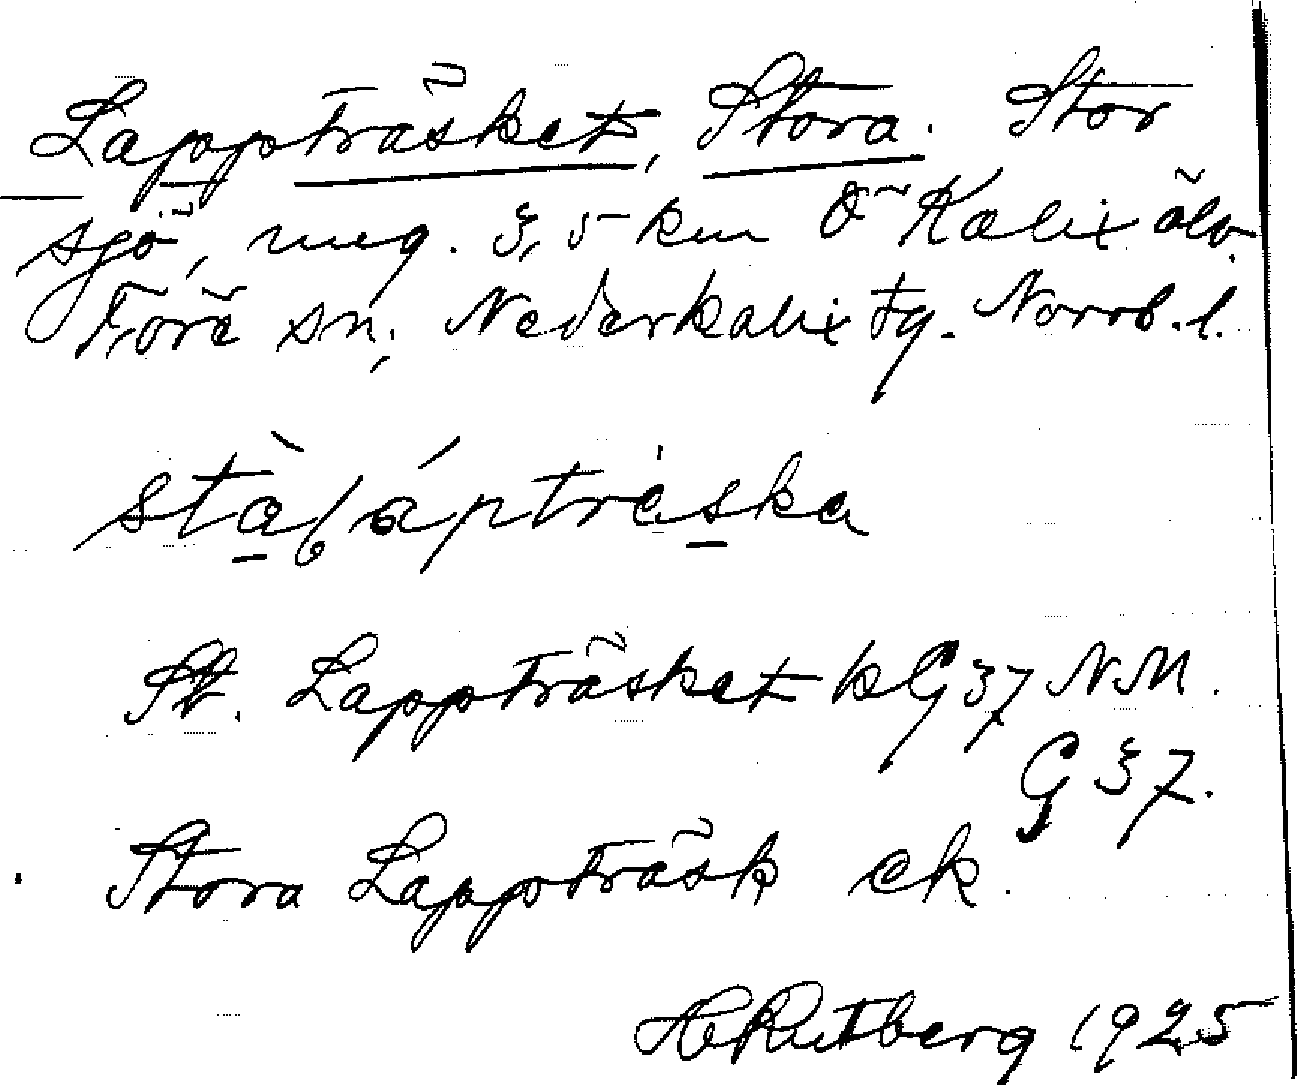 Lappträsket, Stora. Stor
sjö, ung. 3,5 km Ö Kalix älv.
Töre sn, Nederkalix tg. Norrb. l.
St. Lappträsket kG37 NM.
G 37.
Stora Lappträsk ek.
H Rutberg 1925